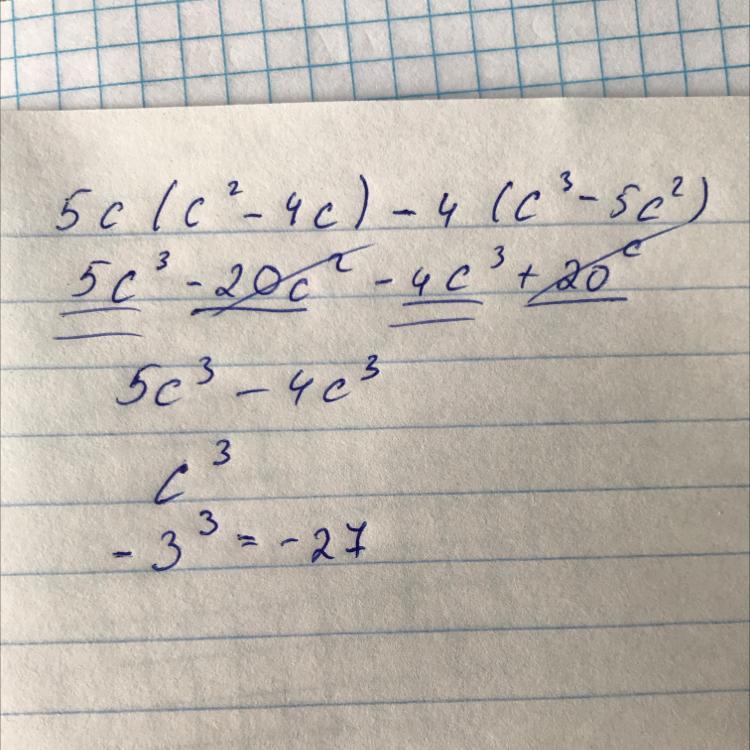 5c(c² - 4c) - 4(c³ - 5c²)
5c³ - 20c² - 4c³ + 20c
5c³ - 4c³
c³
-3³ = -27